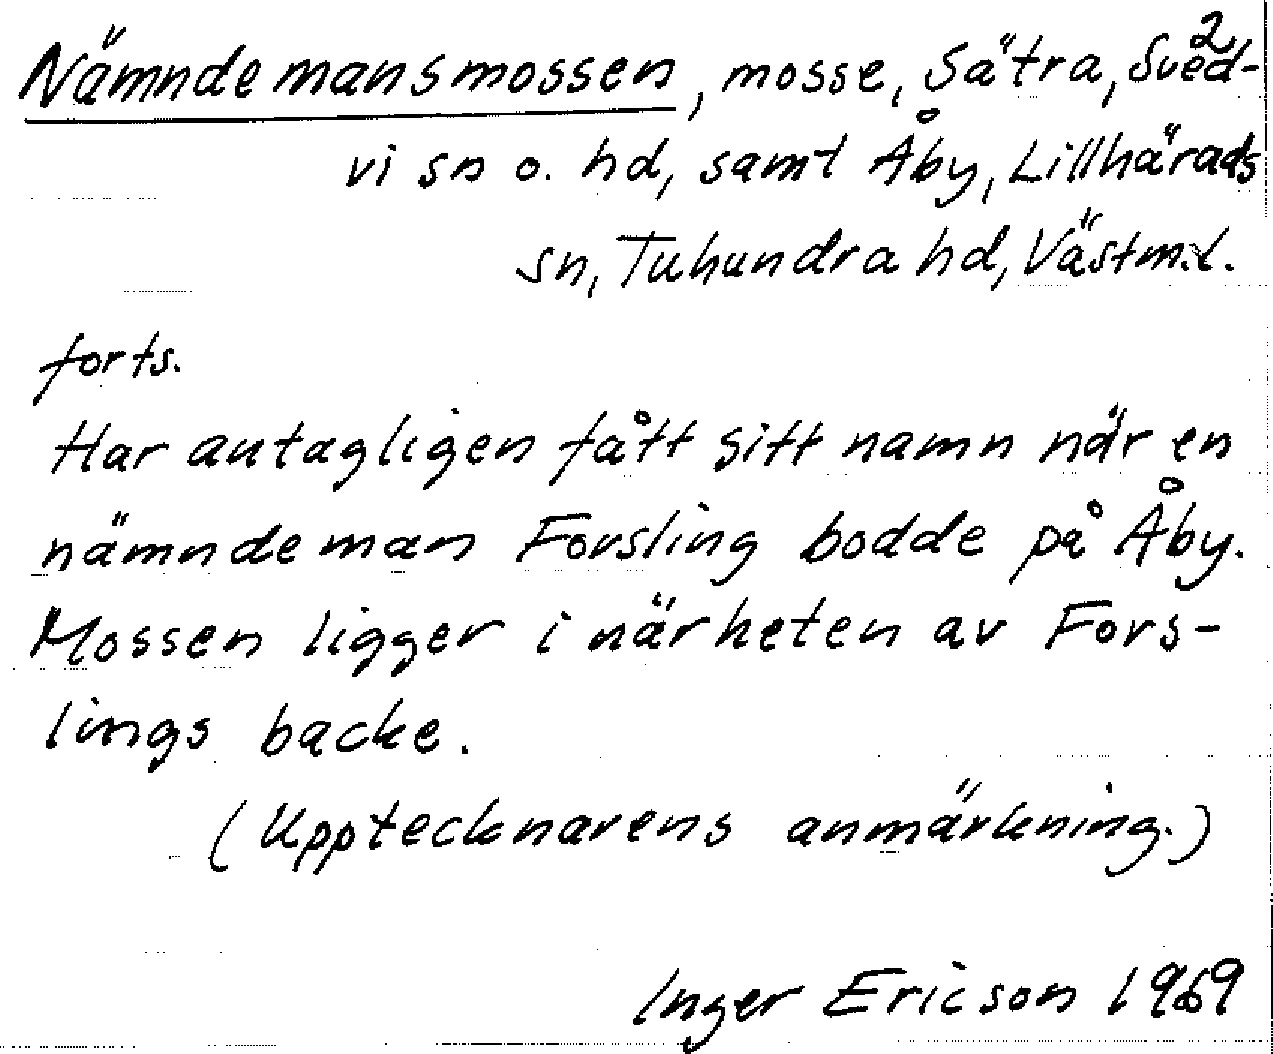 2
Nämndemansmossen, mosse, Sätra, Sved-
vi sn o. hd, samt Åby, Lillhärads
sn, Tuhundra hd, Västm.l.
forts.
Har antagligen fått sitt namn när en
nämndeman Forsling bodde på Åby.
Mossen ligger i närheten av Fors-
lings backe.
(Upptecknarens anmärkning.)
Inger Ericson 1969